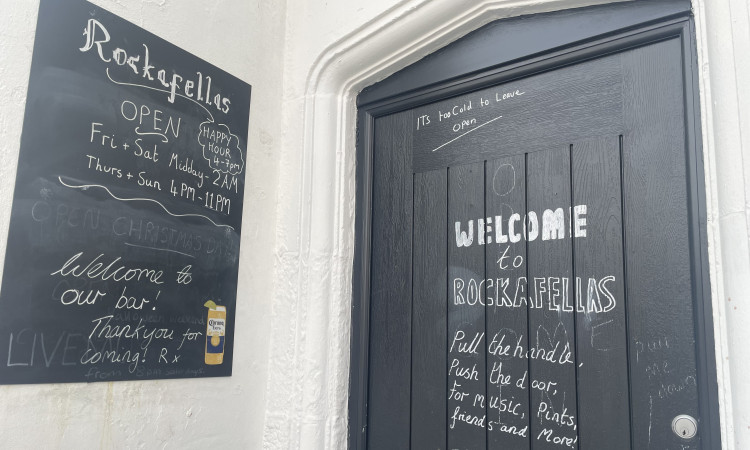 Rockafellas
OPEN
HAPPY
HOUR
4-7pm
Fri + Sat Midday - 2AM
Thurs + Sun 4PM - 11PM
OPEN CHRISTMAS DAY
Welcome to
our bar!
Thankyou for
coming! Rx
LIVE
Corona
ITs too Cold to Leave
Open
WELCOME
to
ROCKAFELLAS
Pull the handle,
Push the door,
for music, Pints,
friends and More!